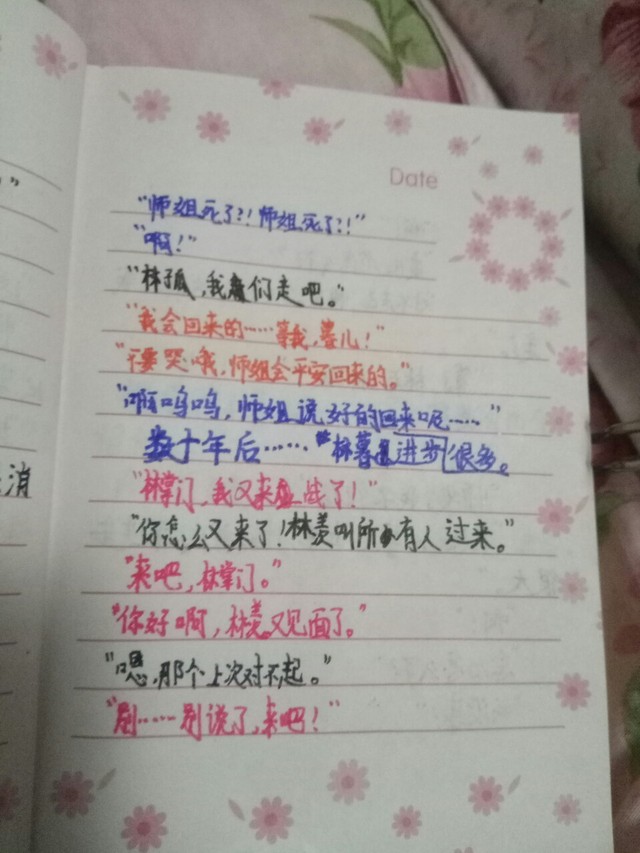 Date
"师姐死了?!师姐死了?!"
"啊!"
"林子孤,我们走吧。"
"我会回来的……等我,暮儿!"
"不要哭哦,师姐会平安回来的。"
"啊呜呜,师姐说好的回来呢……"
数十年后……"林暮进步很多。
"林掌门,我又来战了!"
"你怎么又来了!林羡叫所有人过来。"
"来吧,林掌门。"
"你好啊,林羡又见面了。"
"嗯,那个上次对不起。"
"别……别说了,来吧!"
消